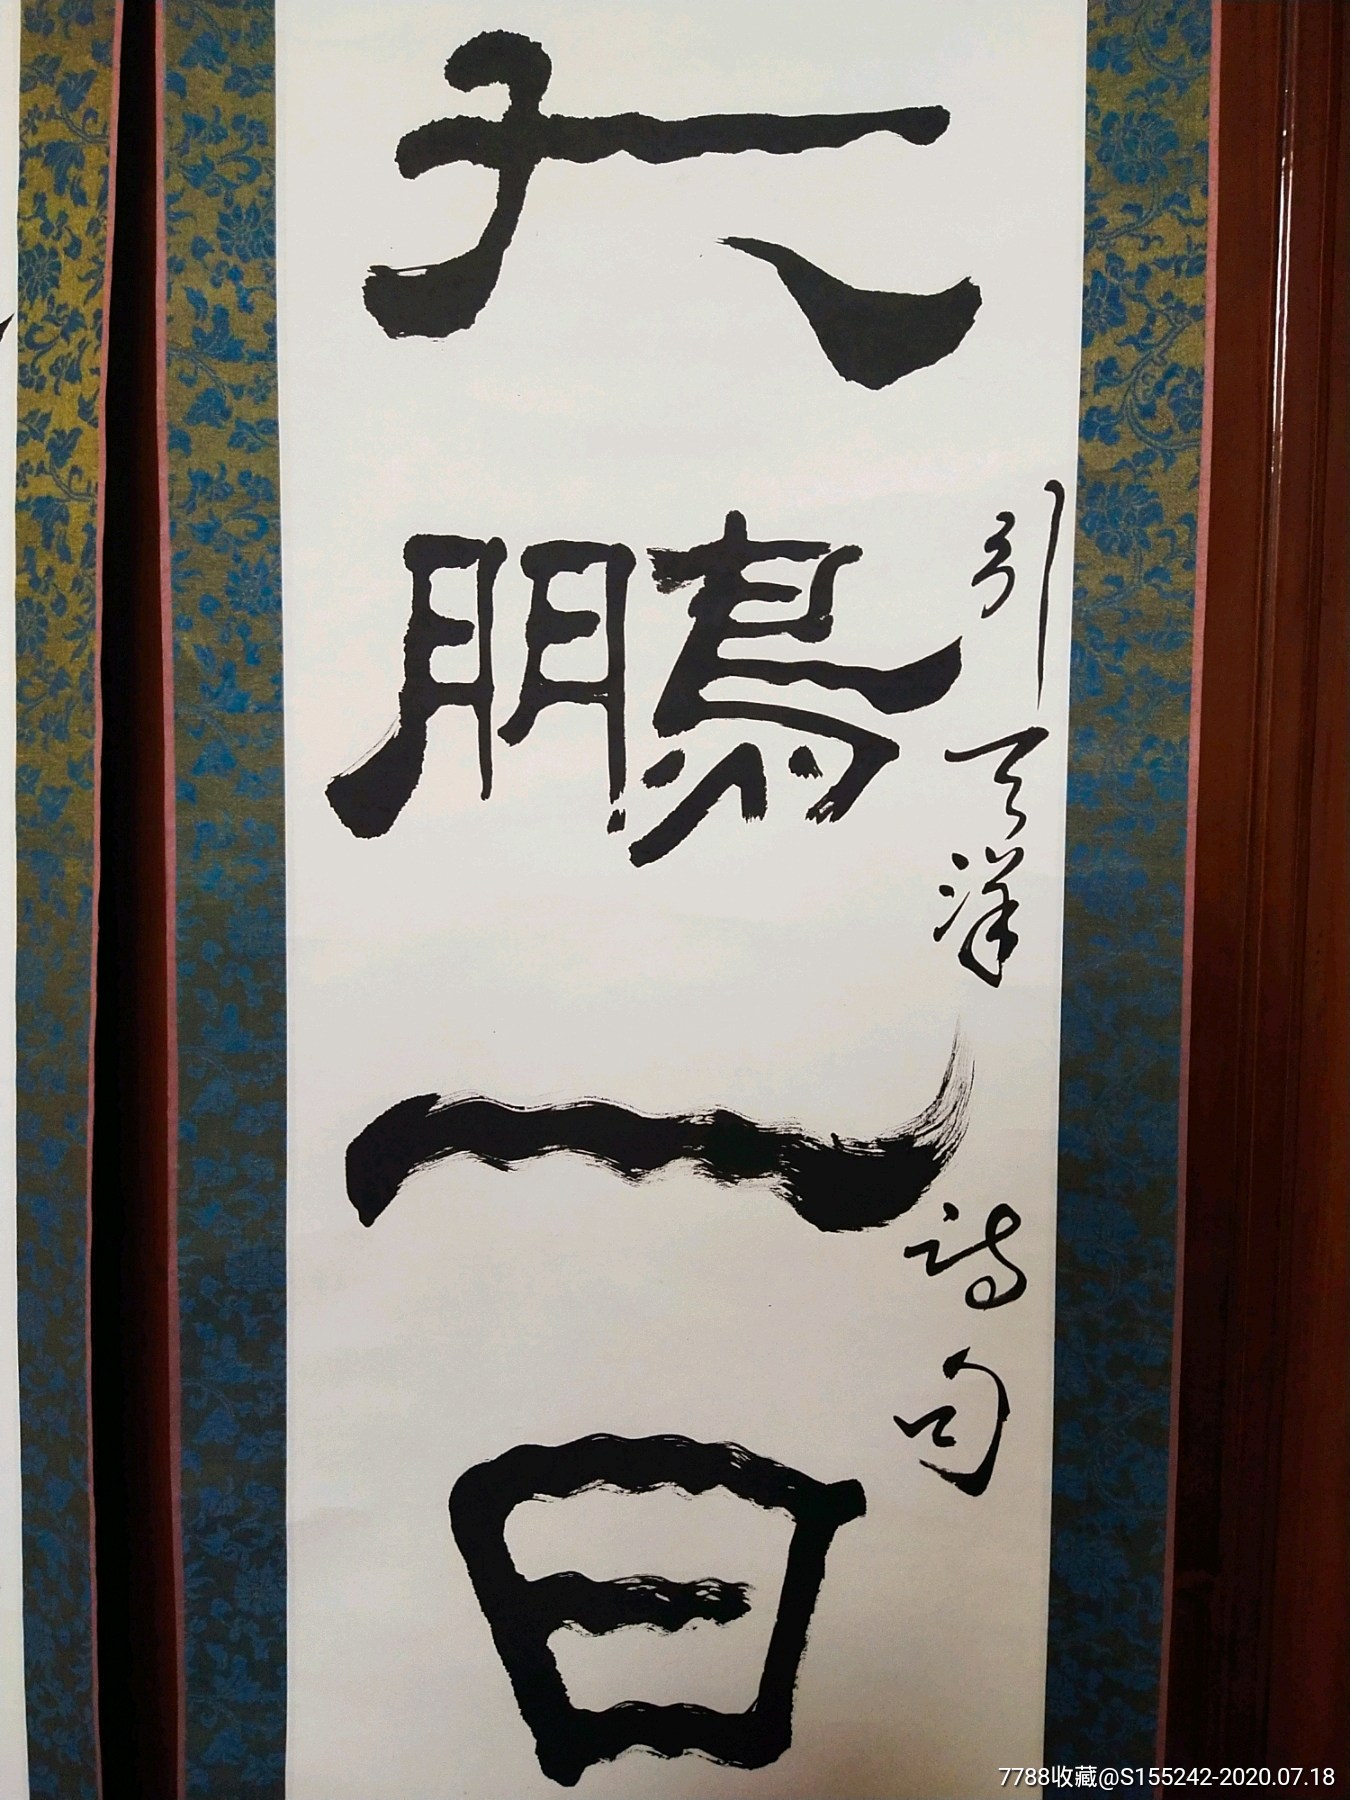 大鵬一日
引天洋詩句
7788收藏@S155242-2020.07.18